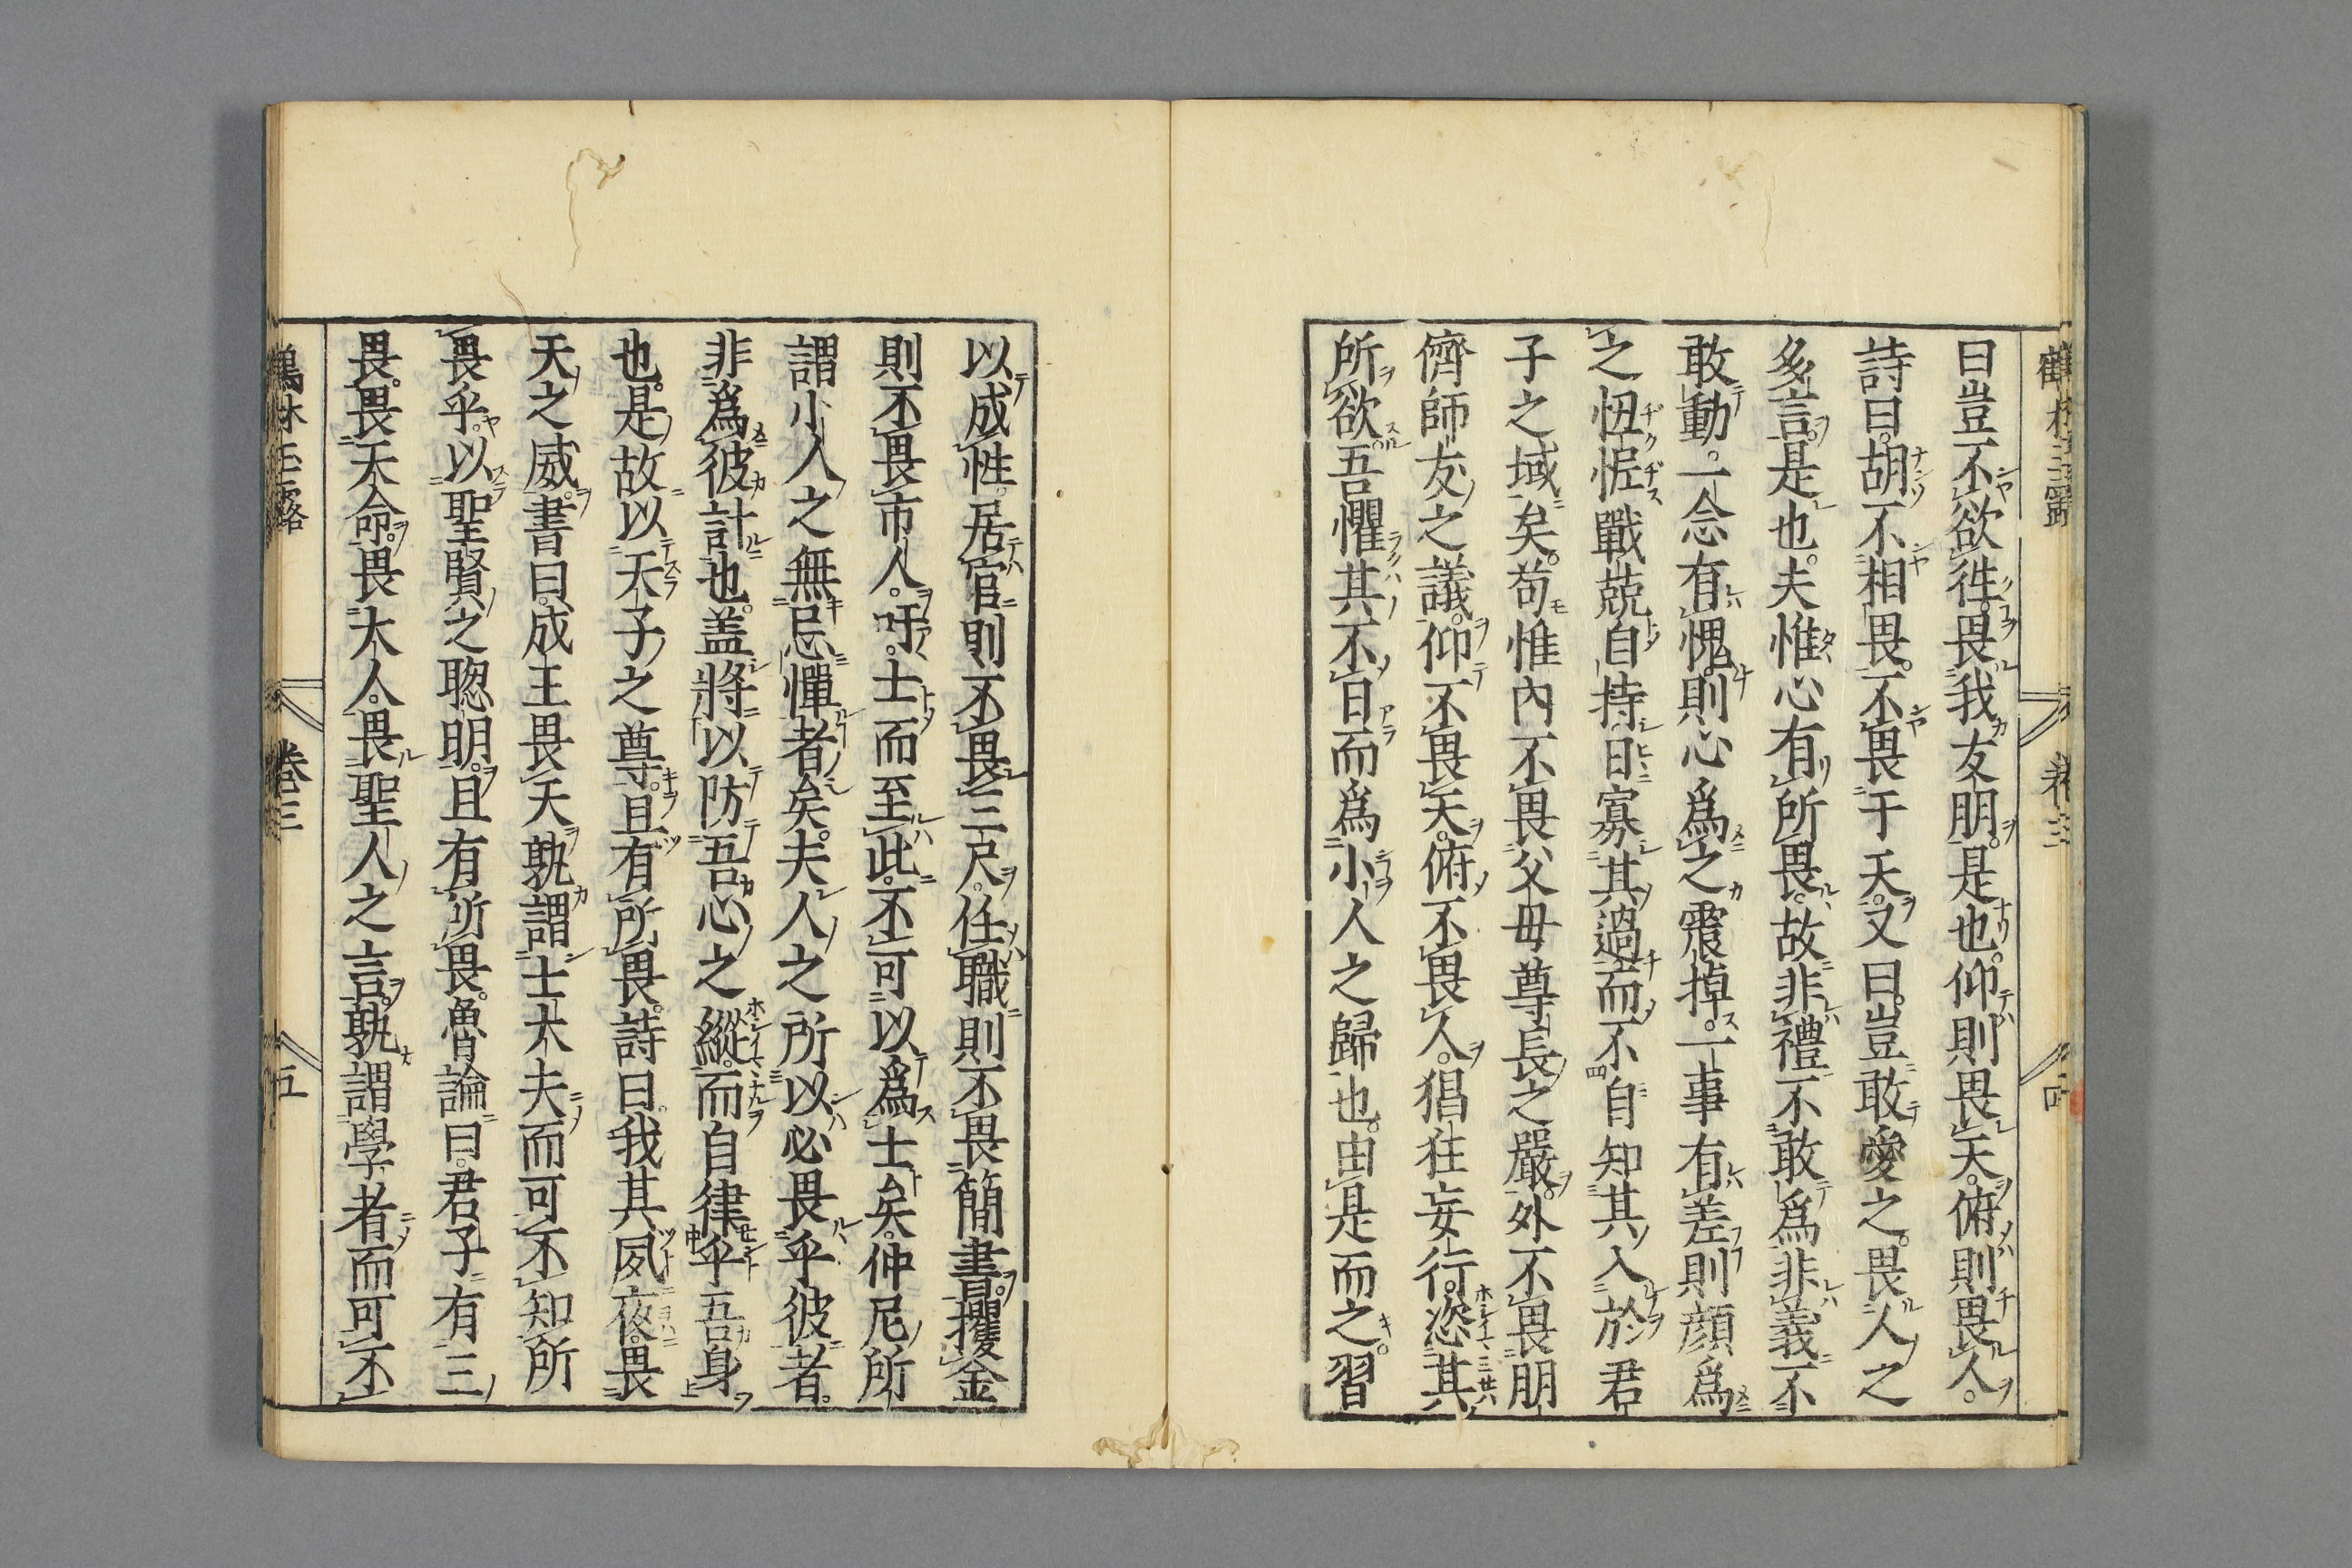 曰豈不欲徃畏我友朋是也仰則畏天俯則畏人
詩曰胡不相畏不畏于天又曰豈敢愛之畏人之
多言是也夫惟心有所畏故非禮不敢爲非義不
敢動一念有愧則心爲之震掉一事有差則顔爲
之忸怩戰兢自持日寡其過而不自知其入於君
子之域矣苟惟内不畏父母尊長之嚴外不畏朋
儕師友之議仰不畏天俯不畏人猖狂妄行恣其
所欲吾懼其不日而爲小人之歸也由是而之習
以成性居官則不畏三尺任職則不畏簡書攫金
則不畏市人吁士而至此不可以爲士矣仲尼所
謂小人之無忌憚者矣夫人之所以必畏乎彼者
非爲彼計也盖將以防吾心之縱而自律乎吾身
也是故以天子之尊且有所畏詩曰我其夙夜畏
天之威書曰成王畏天孰謂士大夫而可不知所
畏乎以聖賢之聰明且有所畏魯論曰君子有三
畏畏天命畏大人畏聖人之言孰謂學者而可不
鶴林玉露 卷三 五